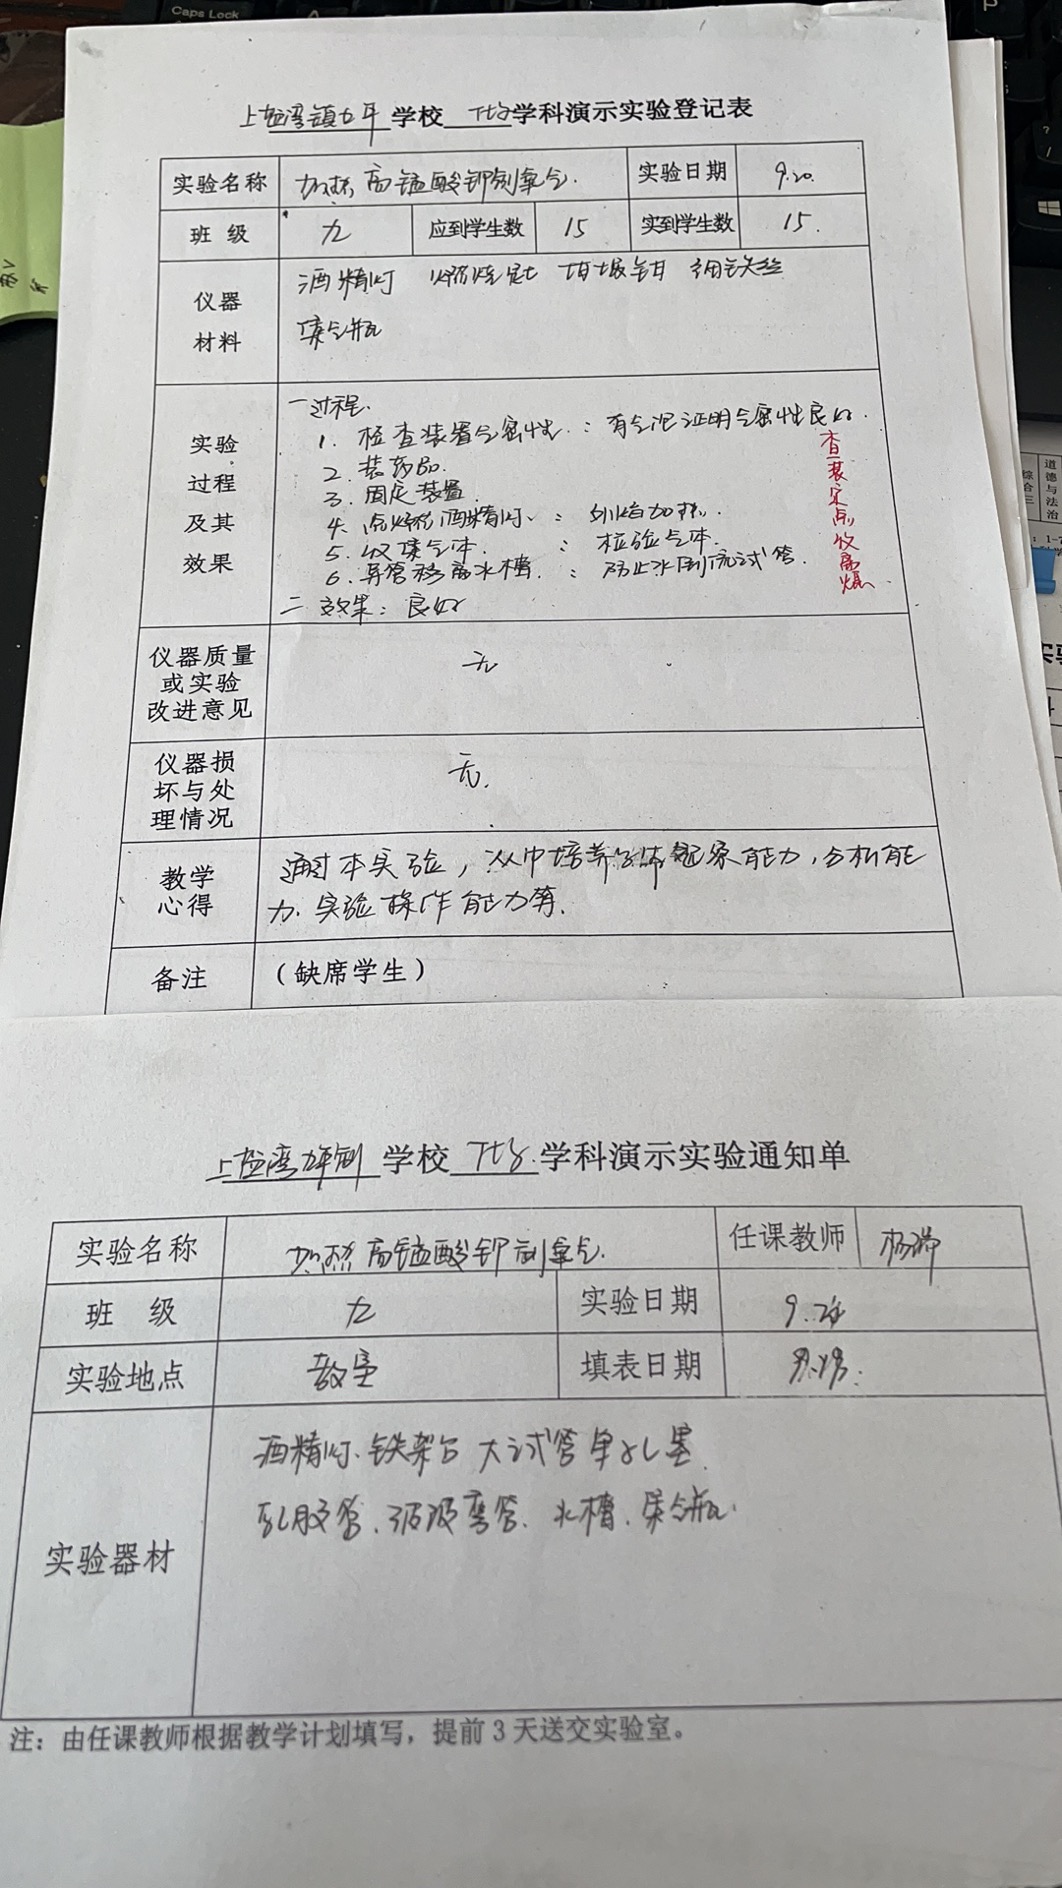 Caps Lock
学校 化学学科演示实验登记表
实验名称 加热高锰酸钾制氧气. 实验日期 9.20.
班 级 九 应到学生数 15 实到学生数 15.
仪器材料 酒精灯 燃烧匙 坩埚钳 细铁丝
集气瓶
实验过程及其效果
一过程.
1. 检查装置气密性.:有气泡证明气密性良好.
2. 装药品.
3. 固定装置.
4. 点燃酒精灯.:外焰加热.
5. 收集气体.:检验气体.
6. 导管移离水槽.:防止水倒流试管.
二 效果:良好
查装定点收离熄.
仪器质量或实验改进意见 无
仪器损坏与处理情况 无.
教学心得 通过本实验,从中培养学生观察能力,分析能
力.实验操作能力等.
备注 (缺席学生)
学校 化学.学科演示实验通知单
实验名称 加热高锰酸钾制氧气. 任课教师
班 级 九 实验日期
实验地点 教室 填表日期
实验器材 酒精灯.铁架台 大试管 单孔塞.
乳胶管.玻玻弯管.水槽.集气瓶.
注:由任课教师根据教学计划填写,提前 3 天送交实验室。
道德与法治
综合三